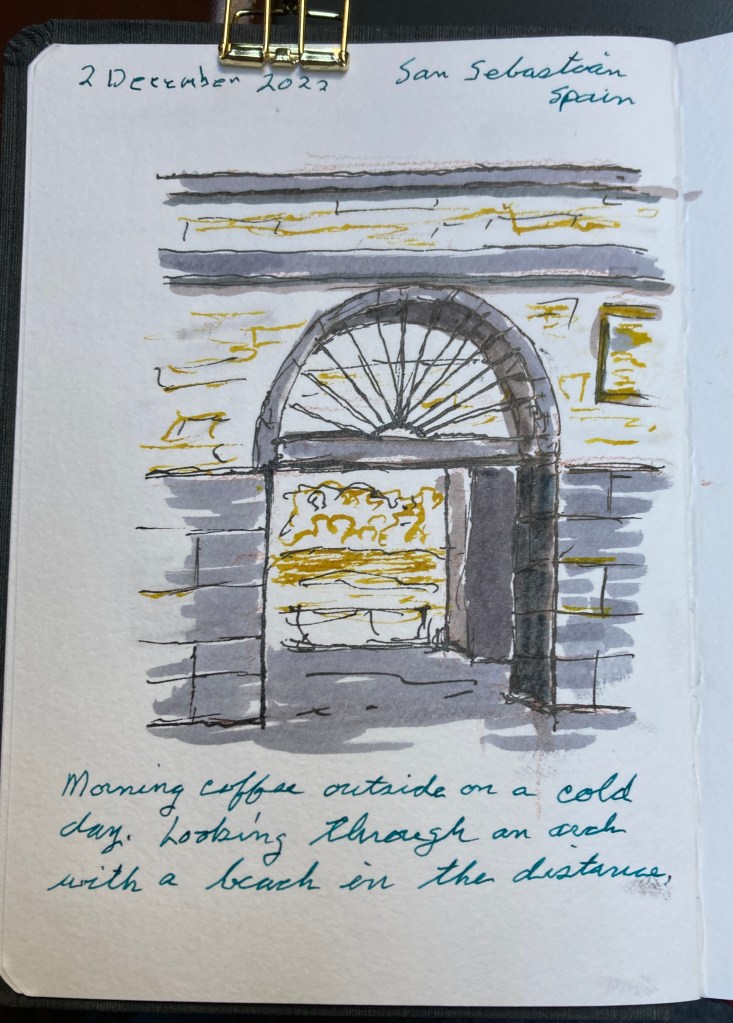 2 December 2022
San Sebastián
Spain
Morning coffee outside on a cold
day. Looking through an arch
with a beach in the distance.